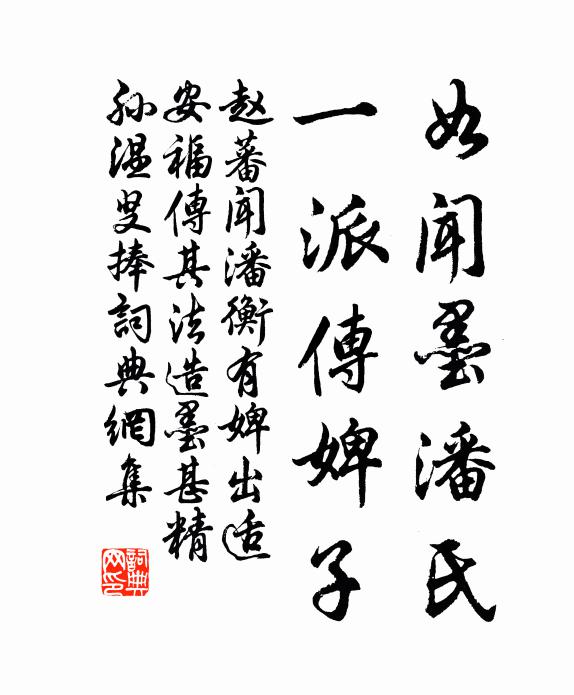 如闻墨潘氏
一派傳婢子
赵蕃闻潘衡有婢出适
安福傳其法造墨甚精
孙温叟捧詞典網集
詞典网印